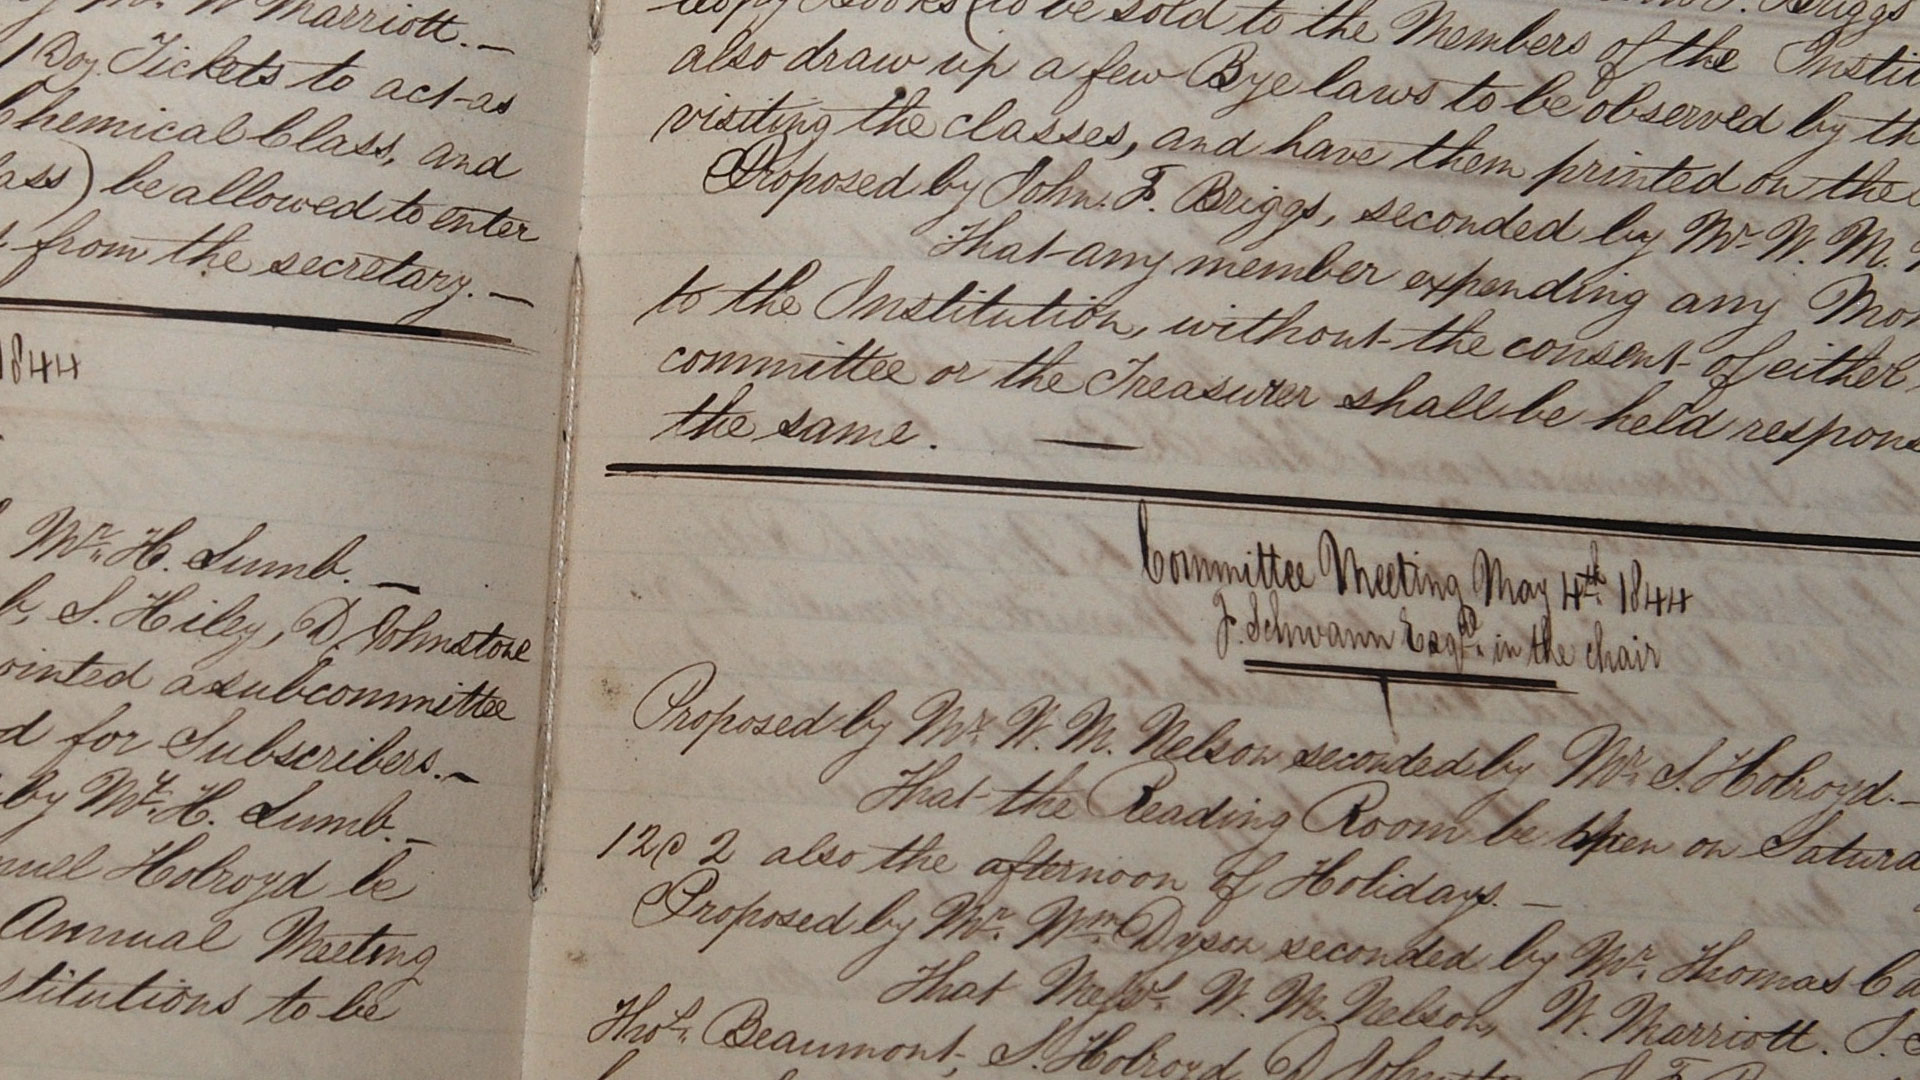 by Mr. W Marriott. —
1 Day Tickets to act as
Chemical Class, and
ass) be allowed to enter
from the secretary. —
1844
Mr. H. Lumb. —
b, S. Hiley, D. Johnstone
ointed a subcommittee
d for Subscribers. —
by Mr. H. Lumb. —
muel Holroyd be
Annual Meeting
stitutions to be
Copy Books (to be sold to the Members of the Instit
also draw up a few Bye laws to be observed by th
visiting the classes, and have them printed on the
Proposed by John. F. Briggs, seconded by Mr. W. M.
That any member expending any Mon
to the Institution, without the consent of either
committee or the Treasurer shall be held respons
the same. —
Committee Meeting May 4th. 1844
F. Schwann Esqre. in the chair
Proposed by Mr. W. M. Nelson seconded by Mr. S. Holroyd. —
That the Reading Room be open on Satura
12 @ 2 also the afternoon of Holidays. —
Proposed by Mr. Wm. Dyson seconded by Mr. Thomas Ca
That Messrs. W. M. Nelson, W. Marriott.
Thos. Beaumont, S. Holroyd D Johnston